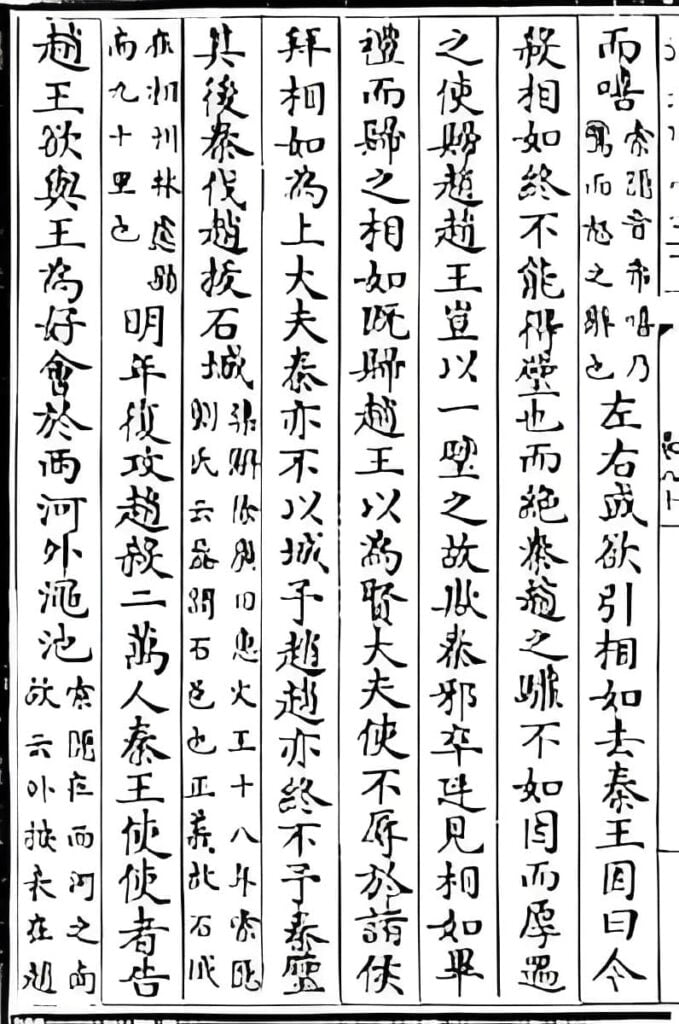 而嘻索隱音希嘻乃驚而怒之辭也左右或欲引相如去秦王因曰今
殺相如終不能得璧也而絶秦趙之驩不如因而厚遇
之使歸趙趙王豈以一璧之故欺秦邪卒廷見相如畢
禮而歸之相如既歸趙王以為賢大夫使不辱於諸侯
拜相如為上大夫秦亦不以城予趙趙亦終不予秦璧
其後秦伐趙拔石城集解徐廣曰惠文王十八年索隱劉氏云蓋謂石邑也正義故石城
在相州林慮縣南九十里也明年復攻趙殺二萬人秦王使使者告
趙王欲與王為好會於西河外澠池索隱在西河之南故云外按表在趙